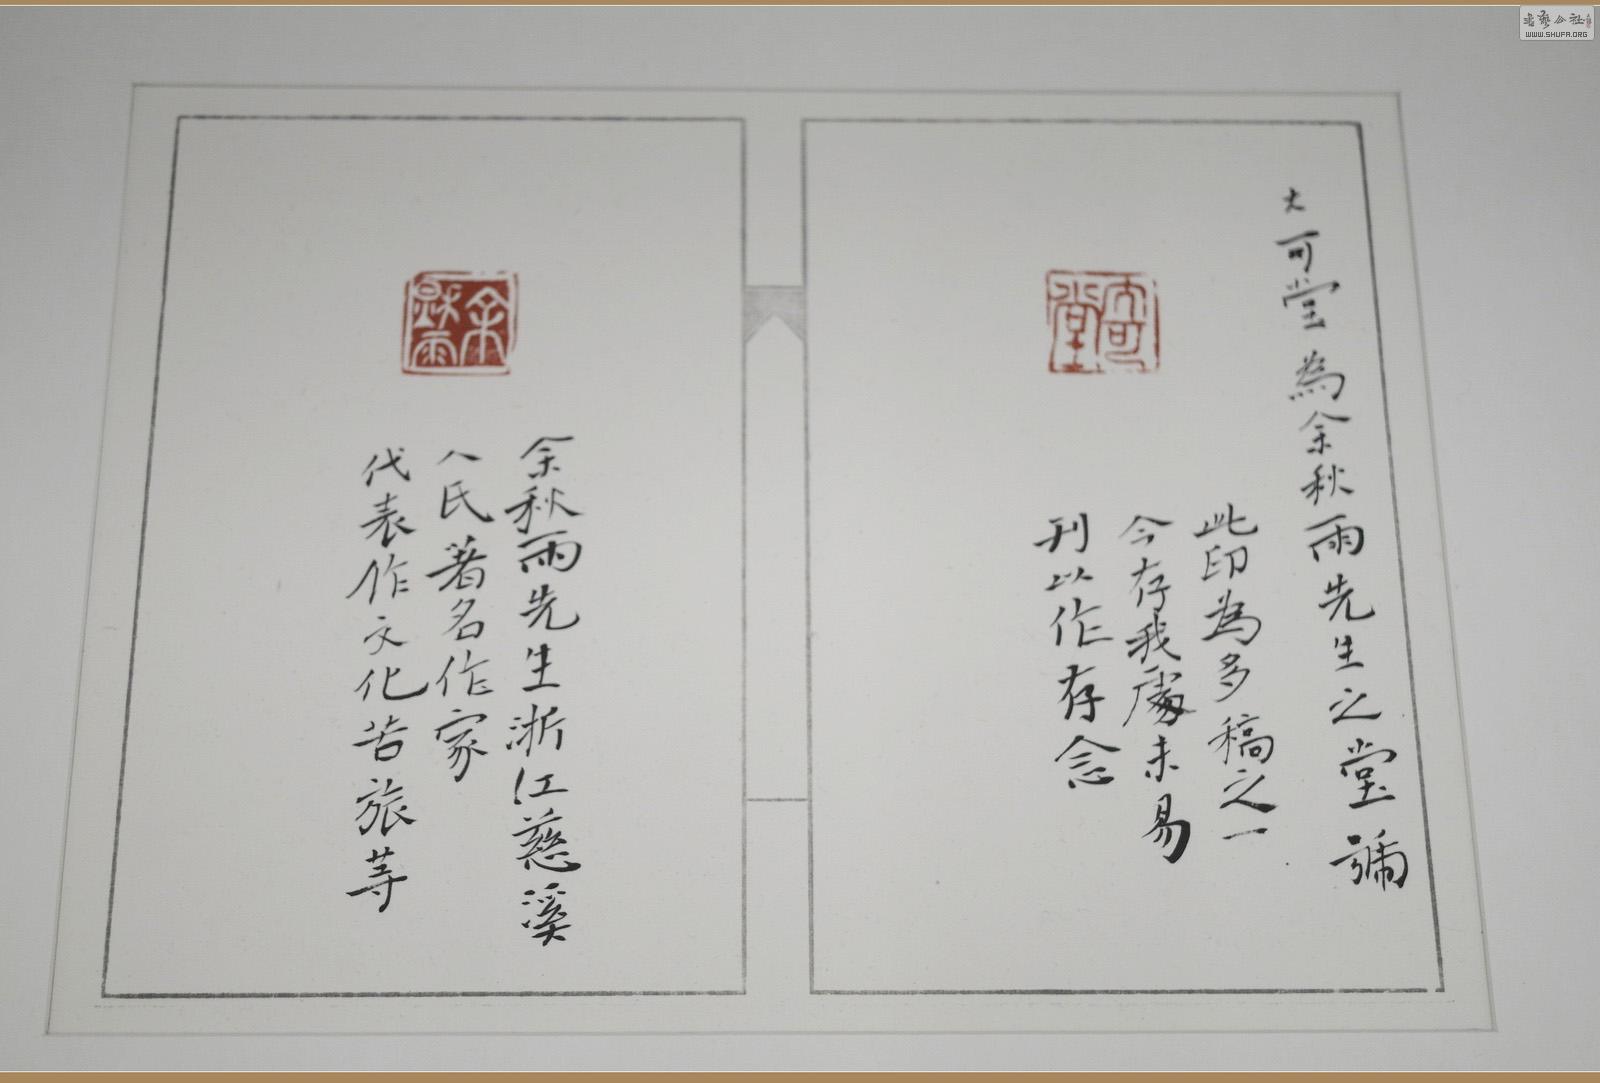 大可堂為余秋雨先生之堂號
此印為多稿之一
今存我處未易
刊以作存念
大可堂
余秋雨先生浙江慈溪
人氏著名作家
代表作文化苦旅等
余秋雨
書藝公社
WWW.SHUFA.ORG